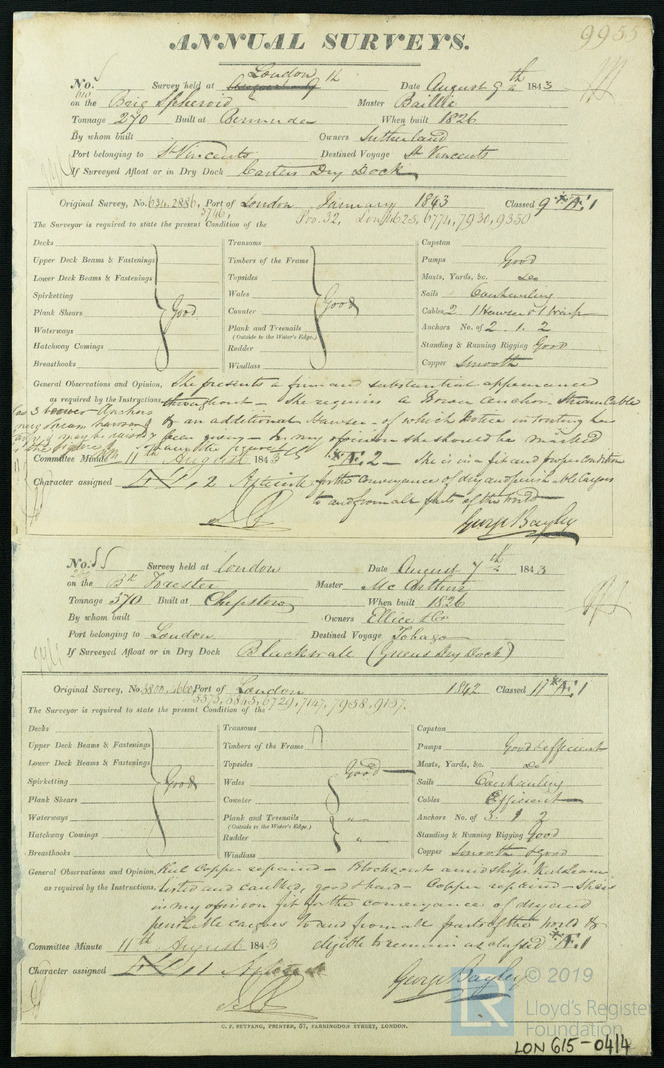 9955
ANNUAL SURVEYS.
No. Survey held at London Date August 9th 1843
on the Brig Spheroid Master Baillie
Tonnage 270 Built at Bermuda When built 1826
By whom built Owners Sutherland
Port belonging to St Vincents Destined Voyage St Vincents
If Surveyed Afloat or in Dry Dock Carters Dry Dock
Original Survey, No. 634, 2886, Port of London January 1843 Classed 9 *Æ 1
5746, Pro. 32, Lon 6225, 6774, 7930, 9350
The Surveyor is required to state the present Condition of the
Decks Transoms Capstan
Upper Deck Beams & Fastenings Timbers of the Frame Pumps Good
Lower Deck Beams & Fastenings Topsides Masts, Yards, &c. Do
Spirketting Wales Sails Overhauling
Plank Shears Good Counter Good Cables 2 1 Hawser & 1 Warp
Waterways Plank and Treenails Anchors No. of 2. 1. 2
(Outside to the Water's Edge.)
Hatchway Comings Rudder Standing & Running Rigging Good
Breasthooks Windlass Copper Smooth
General Observations and Opinion, She presents a firm and substantial appearance
as required by the Instructions, throughout - She requires a Bower Anchor Stream Cable
& an additional Hawser - of which Notice in writing has
been given - In my opinion she should be marked
Committee Minute 11th August 1843 *Æ 2 - She is in a fit and proper condition
Character assigned 2 for the conveyance of dry and perishable cargoes
to and from all parts of the World
George Bayley
No. 55 Survey held at London Date August 7th 1843
on the Bk Forester Master McArthur
Tonnage 370 Built at Chepstow When built 1826
By whom built Owners Ellice & Co
Port belonging to London Destined Voyage Tobago
If Surveyed Afloat or in Dry Dock Blackwall (Greens Dry Dock)
Original Survey, No. 3800, 1660 Port of London 1842 Classed 11 *Æ 1
5573, 5845, 6729, 7147, 7958, 9157.
The Surveyor is required to state the present Condition of the
Decks Transoms Capstan
Upper Deck Beams & Fastenings Timbers of the Frame Pumps Good & efficient
Lower Deck Beams & Fastenings Topsides Good Masts, Yards, &c. Do
Spirketting Good Wales Sails Overhauling
Plank Shears Counter Cables Efficient
Waterways Plank and Treenails Anchors No. of 3. 1 2
(Outside to the Water's Edge.)
Hatchway Comings Rudder Standing & Running Rigging Good
Breasthooks Windlass Copper Smooth & Good
General Observations and Opinion, Keel Copper repaired - Blocks out amidships Keel seams
as required by the Instructions, tested and caulked, good & hard - Copper repaired - She is
in my opinion fit for the conveyance of dry and
perishable cargoes to and from all parts of the World &
Committee Minute 11th August 1843 eligible to remain as classed *Æ 1
Character assigned 11
George Bayley
C. F. SEYFANG, PRINTER, 57, FARRINGDON STREET, LONDON.
LR © 2019
Lloyd's Register
Foundation
LON 615-0414